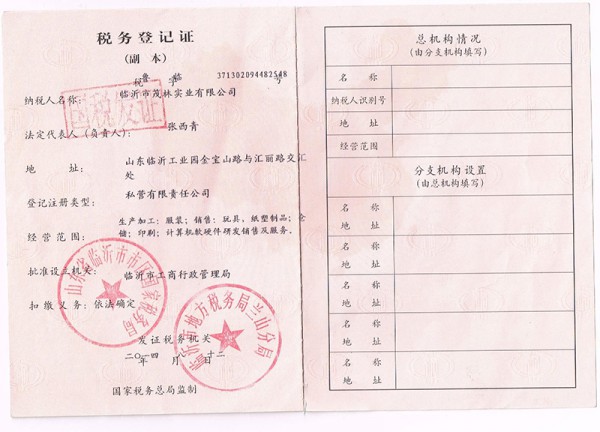 税务登记证
(副 本)
鲁 临
税 字 371302094482548 号
国税发证
纳税人名称: 临沂市茂林实业有限公司
法定代表人(负责人): 张西青
地 址: 山东临沂工业园金宝山路与汇丽路交汇
处
登记注册类型: 私营有限责任公司
生产加工:服装;销售:玩具,纸塑制品;仓
经营范围: 储;印刷;计算机软硬件研发销售及服务。
批准设立机关: 临沂市工商行政管理局
扣缴义务:依法确定
山东省临沂市市国家税务局
临沂市地方税务局兰山分局
发证税务机关
二〇一四 年 八 月 二十二 日
国家税务总局监制
总机构情况
(由分支机构填写)
名 称
纳税人识别号
地 址
经营范围
分支机构设置
(由总机构填写)
名 称
地 址
名 称
地 址
名 称
地 址
名 称
地 址
名 称
地 址